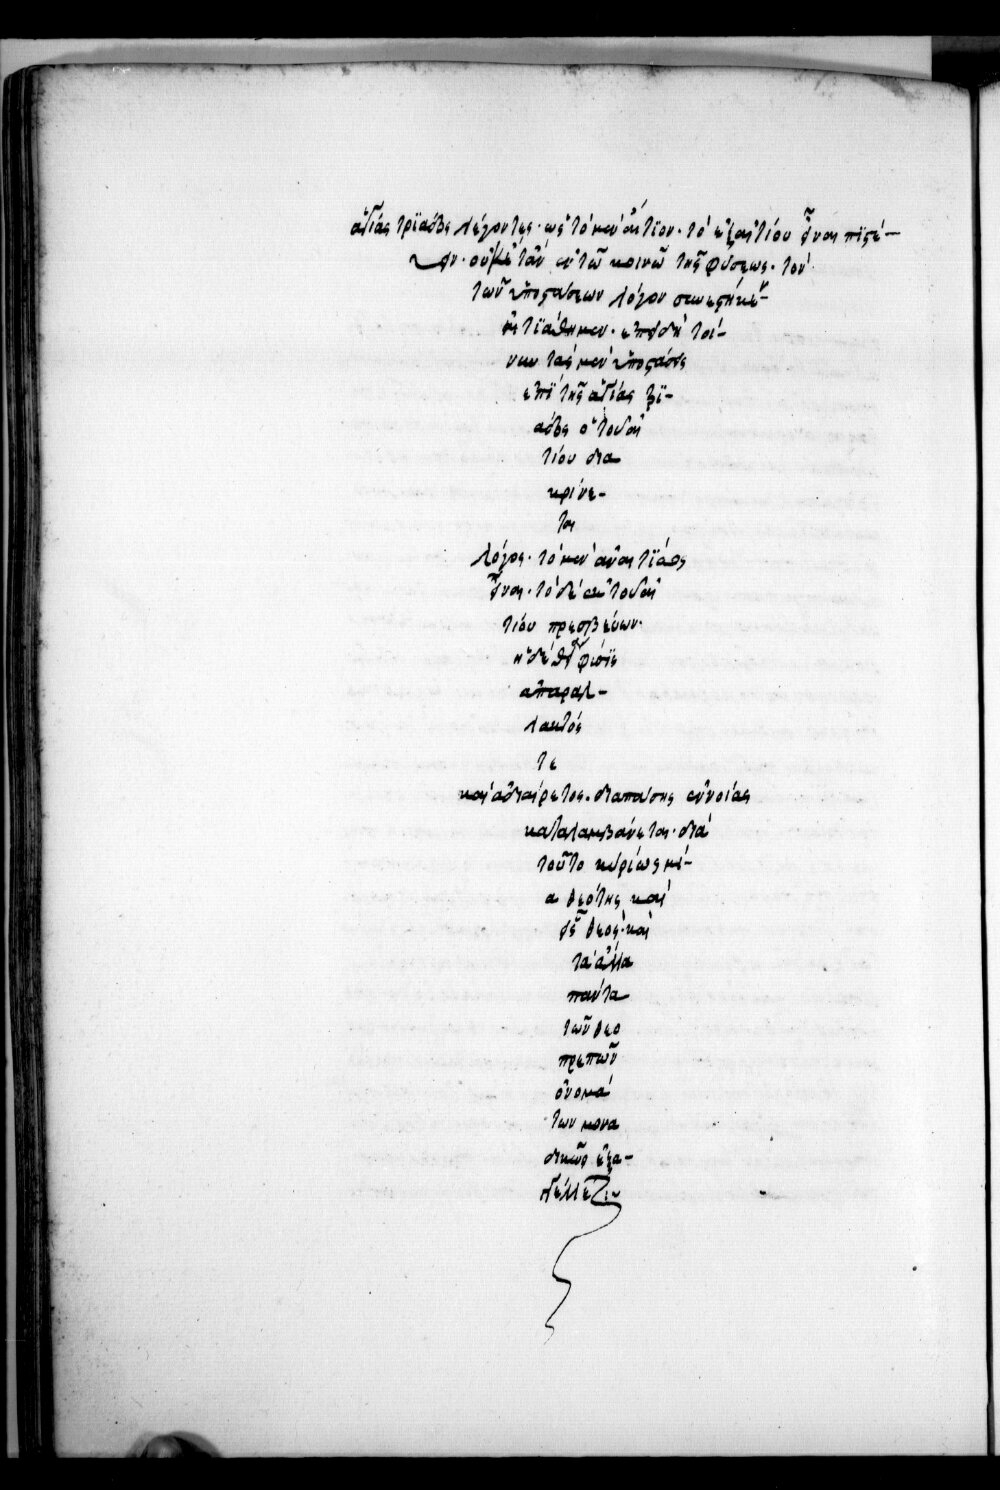 ἁγίας τριάδος λέγοντες· ὡς τὸ μὲν αἴτιον· τὸ ἐξ αἰτίου εἶναι πιστεύ-
ειν· οὐκέτ' ἂν ἐν τῶ κοινῶ τῆς φύσεως· τὸν
τῶν ὑποστάσεων λόγον
αἰτιαθείημεν· ἐπειδὴ τοί-
νυν τὰς μὲν ὑποστάσεις
ἐπὶ τῆς ἁγίας τρι-
άδος ὁ τοῦ αἰ
τίου δια
κρίνε-
ται
λόγος· τὸ μὲν ἀναιτίως
εἶναι· τὸ δὲ ἐκ τοῦ αἰ
τίου πρεσβεύων·
ἡ δὲ θεία φύσις
ἀπαράλ-
λακτός
τε
καὶ ἀδιαίρετος· διαπάσης ἐννοίας
καταλαμβάνεται· διὰ
τοῦτο κυρίως μί-
α θεότης καὶ
εἷς θεός· καὶ
τὰ ἄλλα
πάντα
τῶν θεο
πρεπῶν
ὀνομά
των μονα
δικῶς ἐξα-
γγέλλεται